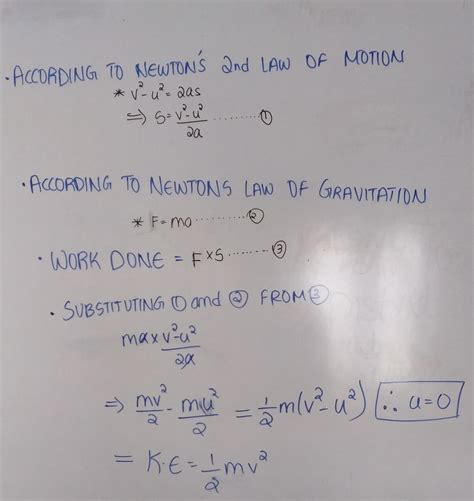 · ACCORDING TO NEWTON'S 2nd LAW OF MOTION
* v²-u² = 2as
⇒ S = v²-u²/2a ......... ①
· ACCORDING TO NEWTONS LAW OF GRAVITATION
* F = ma ......... ②
· WORK DONE = F×S ........ ③
· SUBSTITUTING ① and ② FROM ③
ma × v²-u²/2a
⇒ mv²/2 - mu²/2 = 1/2 m(v²-u²) ∴ u=0
= K.E = 1/2 mv²